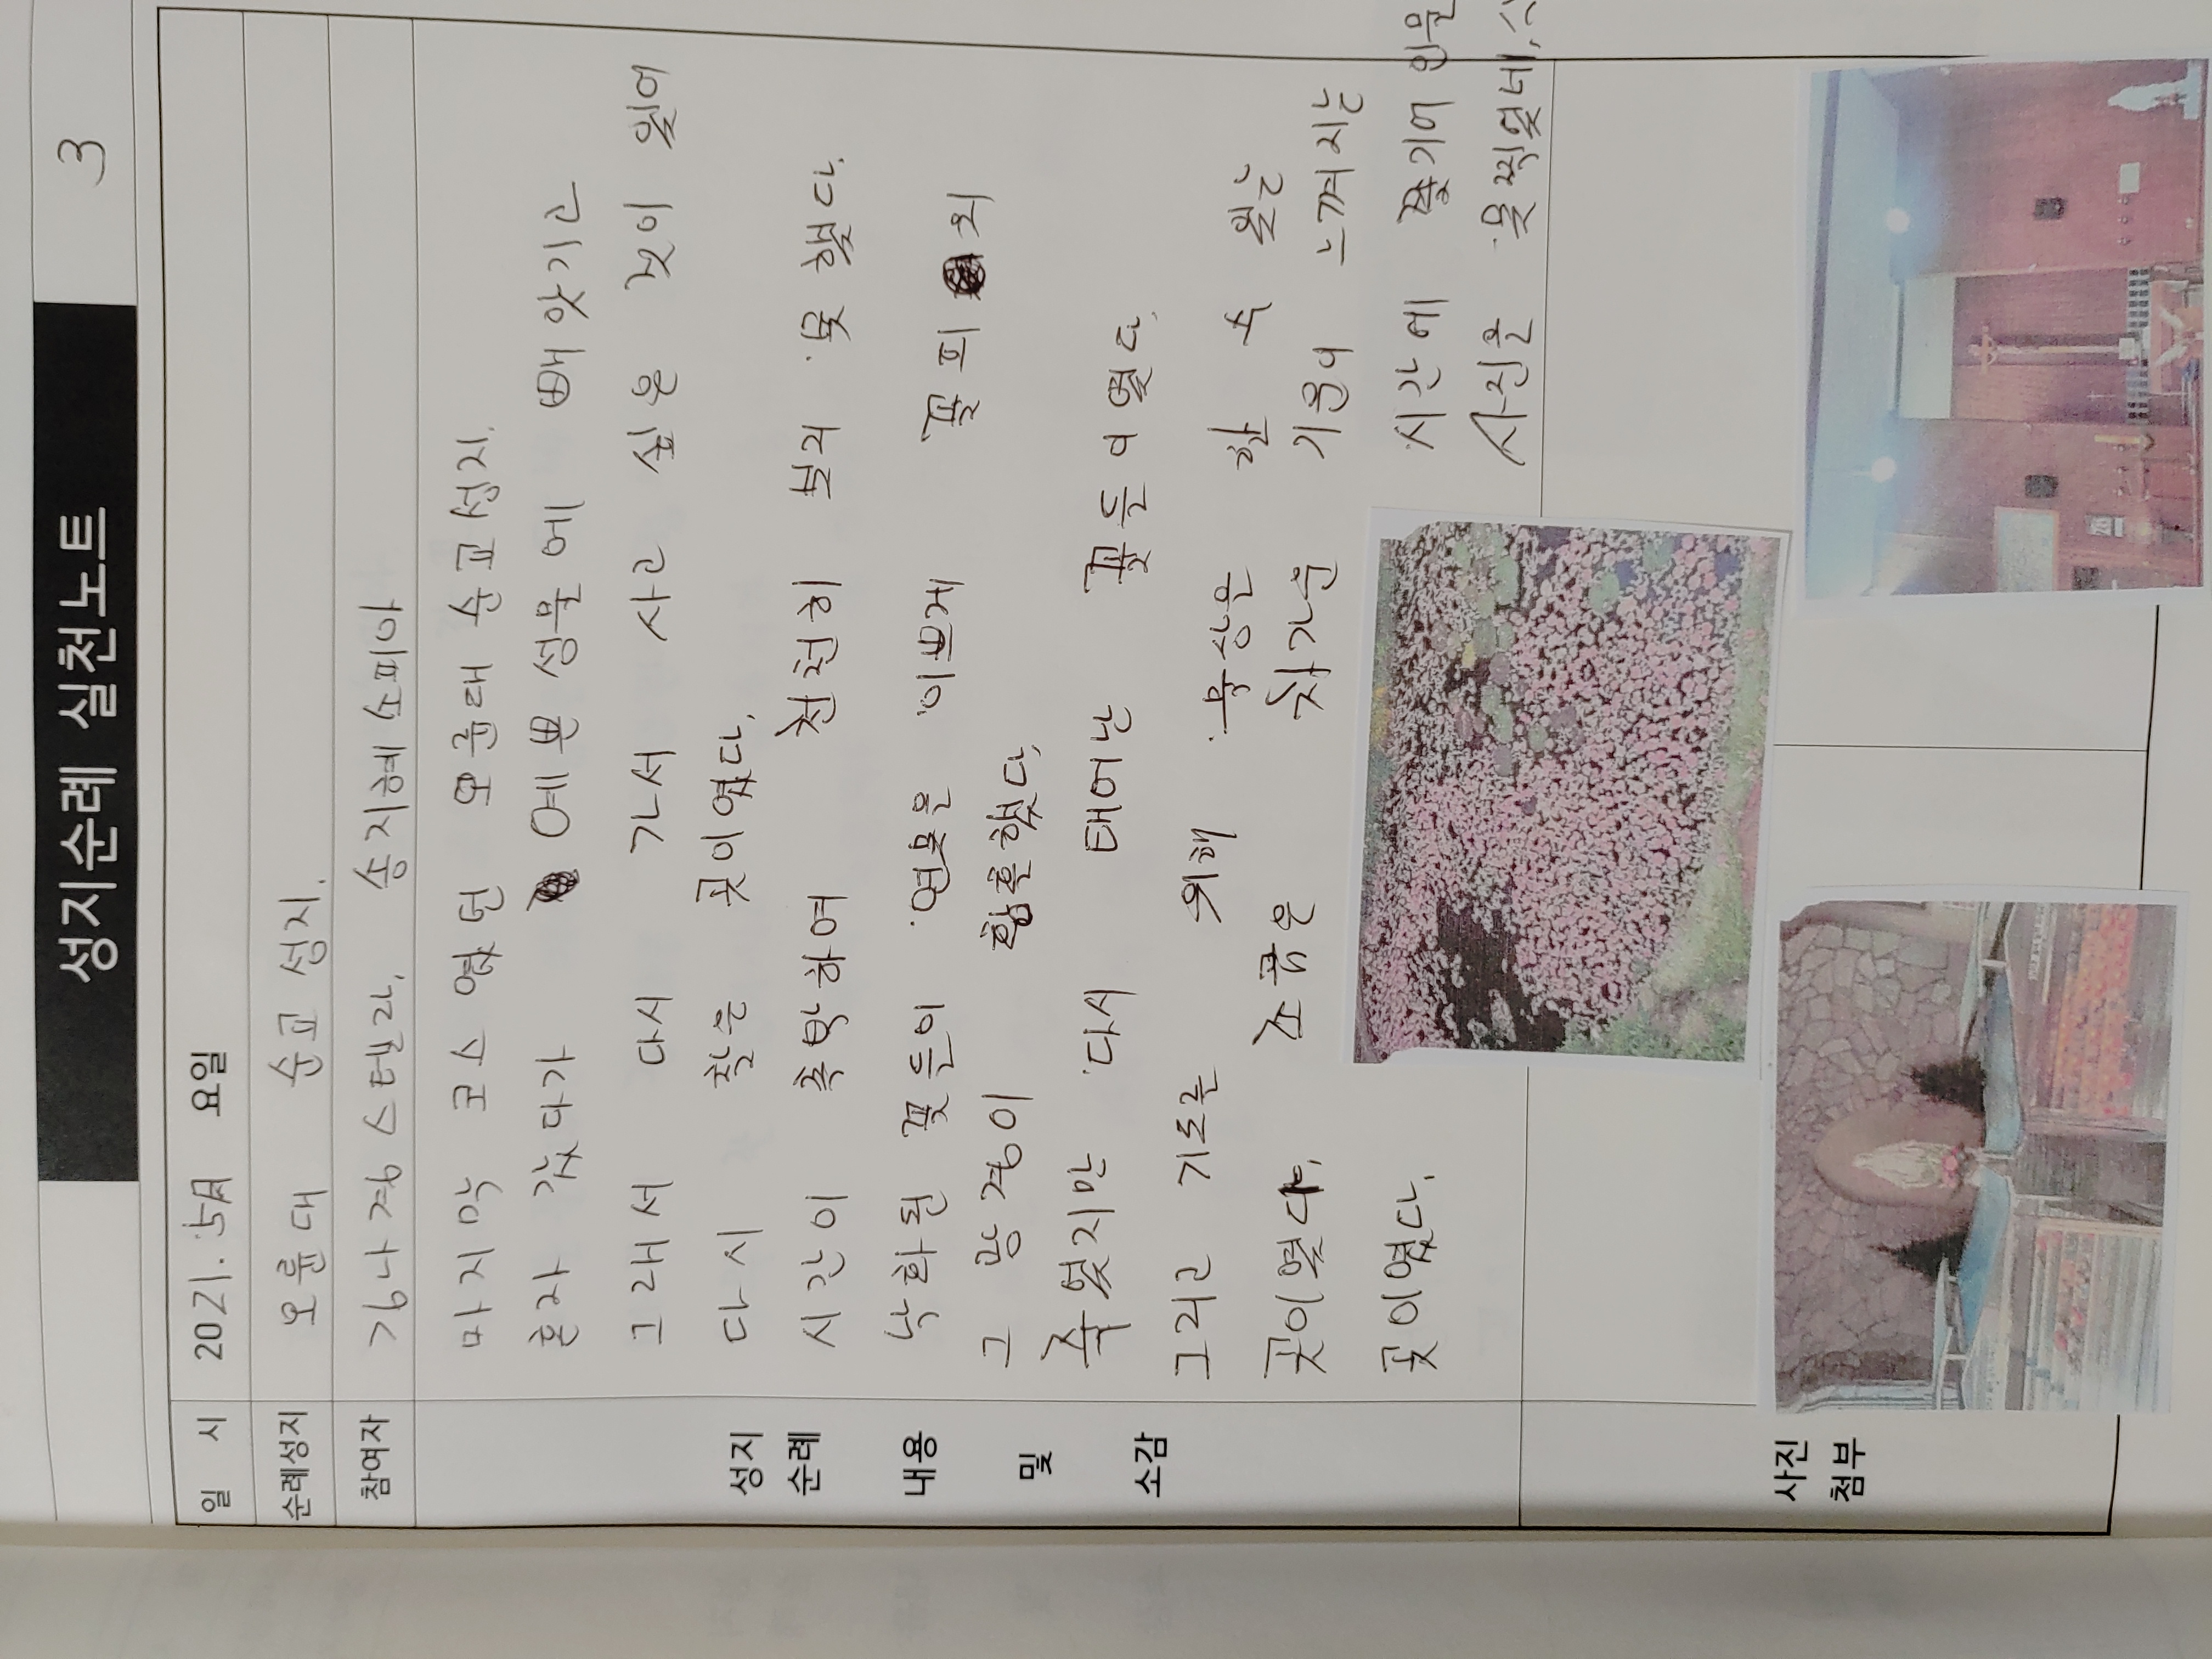 성지순례 실천노트 3
일 시 2021. 5月 요일
순례성지 오륜대 순교성지.
참여자 김나경 스텔라, 송지혜 소피아
마지막 코스였던 오륜대 순교성지.
혼자 갔다가 예쁜 성물에 빼앗기고
그래서 다시 가서 사고 싶은 것이 있어
다시 찾은 곳이였다.
시간이 촉박하여 천천히 보지 못했다.
낙화된 꽃들이 연못을 이쁘게 꽃피워
그 광경이 황홀했다.
죽었지만 다시 태어난 꽃들이였다.
그리고 기도를 위해 묵상을 할 수 있는
곳이였다. 조금은 차가운 기운이 느껴지는
곳이였다.
시간에 쫓기어 인물
사진은 못찍었네.
성지
순례
내용
및
소감
사진
첨부